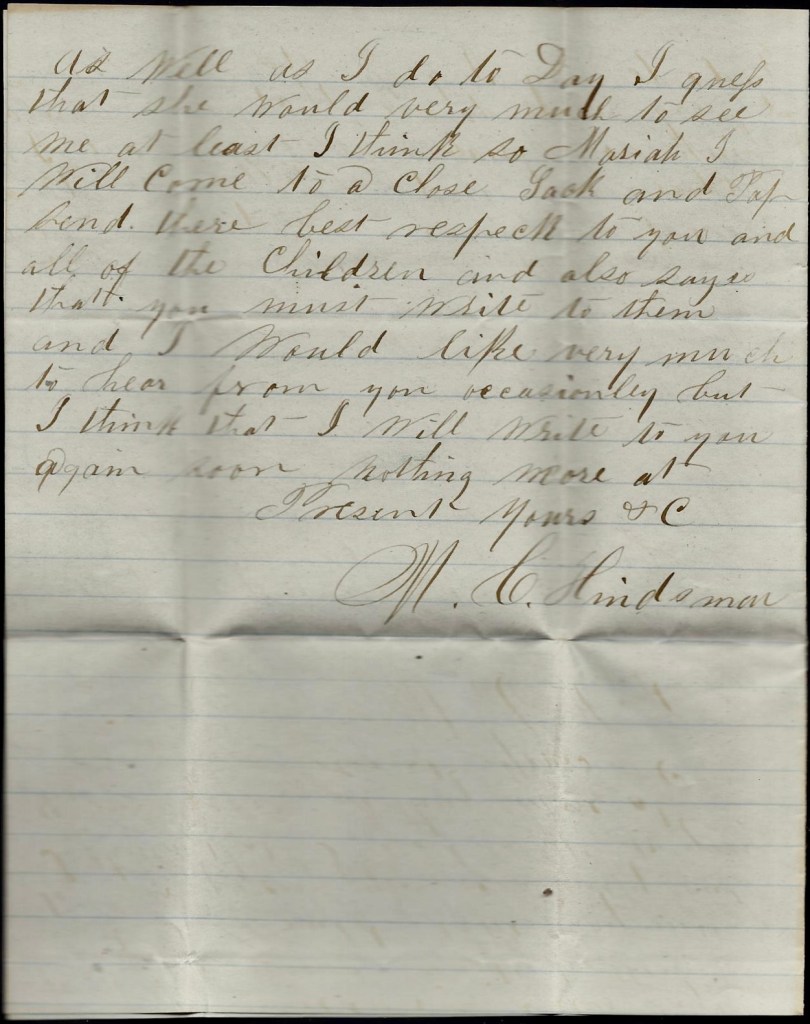 as Well as I do to Day I guess
that she would very much to see
me at least I think so Mariah I
Will Come to a Close Jack and Pap
send there best respeck to you and
all of the Children and also says
that you must write to them
and I Would like very much
to hear from you occasionley but
I think that I Will Write to you
again soon nothing more at
Present Yours & C
M. C. Hindsman